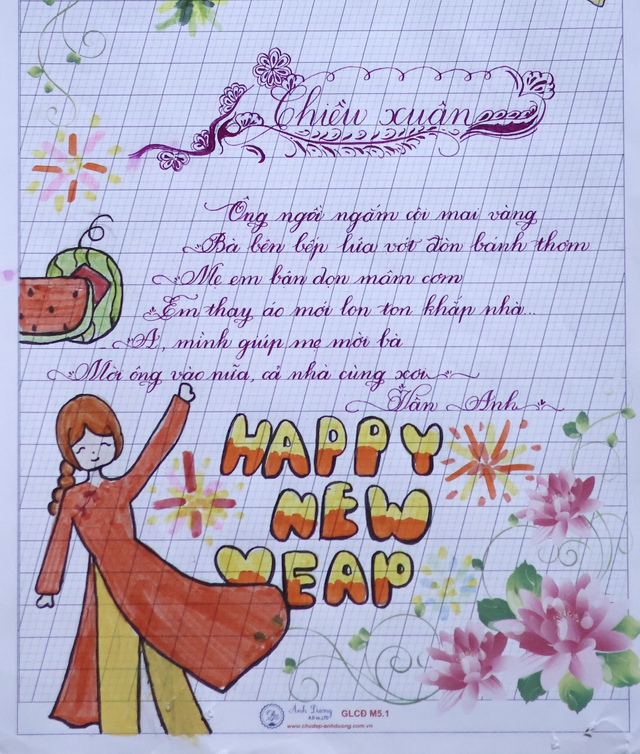 Chiều xuân
Ông ngồi ngắm cội mai vàng
Bà bên bếp lửa vớt đòn bánh thơm
Mẹ em bận dọn mâm cơm
Em thay áo mới lon ton khắp nhà...
A, mình giúp mẹ mời bà
Mời ông vào nữa, cả nhà cùng xơi
Vân Anh
HAPPY
NEW
YEAP
Ánh Dương
GLCĐ M5.1
www.chudep-anhduong.com.vn